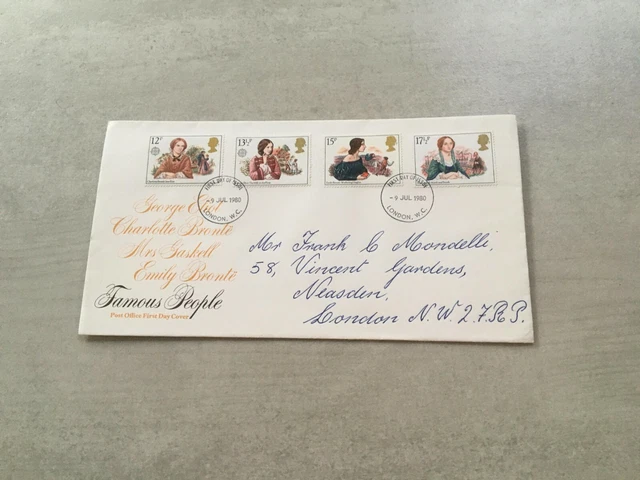 12P
13½P
15P
17½P
FIRST DAY OF ISSUE
-9 JUL 1980
LONDON, W.C.
FIRST DAY OF ISSUE
-9 JUL 1980
LONDON, W.C.
George Eliot
Charlotte Brontë
Mrs Gaskell
Emily Brontë
Famous People
Post Office First Day Cover
Mr Frank C Mondelli.
58, Vincent Gardens,
Neasden,
London N.W.2.7.R.P.